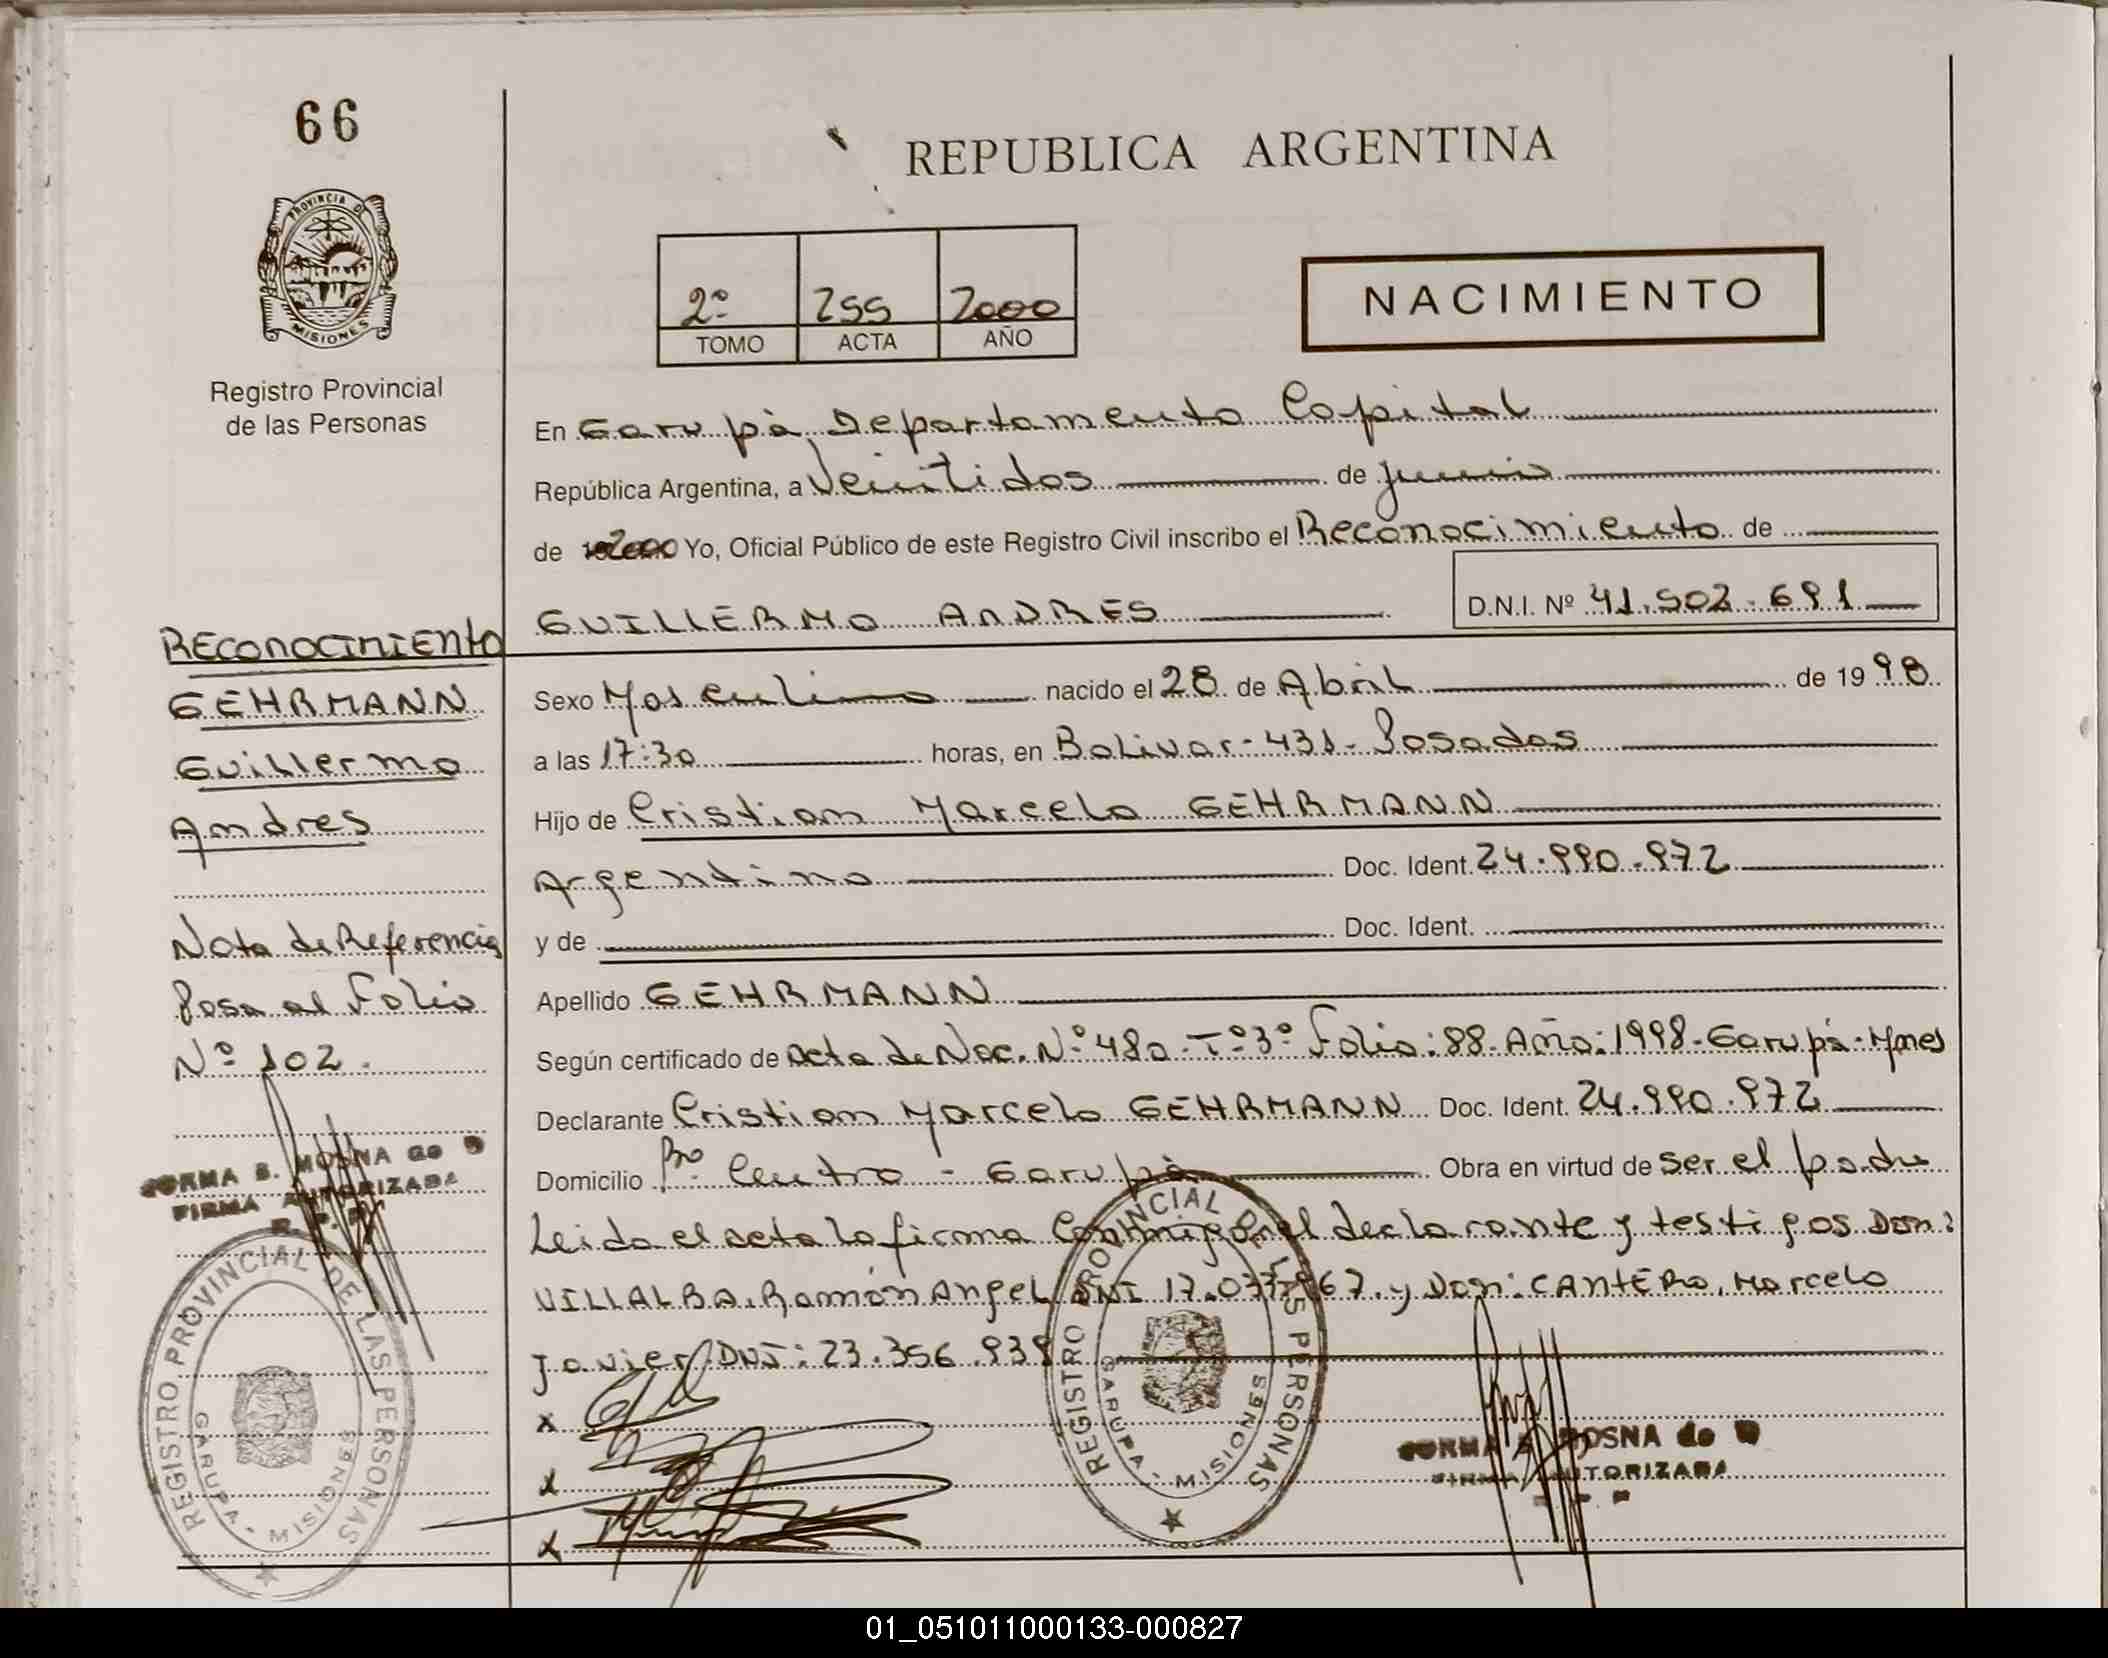 66
REPUBLICA ARGENTINA
PROVINCIA DE
MISIONES
Registro Provincial
de las Personas
2º 255 2000
TOMO ACTA AÑO
NACIMIENTO
En Garupá, Departamento Capital
República Argentina, a Veintidos de junio
de 2000 Yo, Oficial Público de este Registro Civil inscribo el Reconocimiento de
GUILLERMO ANDRES D.N.I. Nº 41.502.691
RECONOCIMIENTO
GEHRMANN
Guillermo
Andres
Nota de Referencia
Pasa al Folio
Nº 102.
NORMA B. MOSNA de
FIRMA AUTORIZADA
R. P. P.
REGISTRO PROVINCIAL DE LAS PERSONAS
GARUPA - MISIONES
Sexo Masculino nacido el 28 de Abril de 1998
a las 17:30 horas, en Bolivar-431-Posadas
Hijo de Cristian Marcelo GEHRMANN
Argentino Doc. Ident. 24.990.972
y de Doc. Ident.
Apellido GEHRMANN
Según certificado de acta de Nac. Nº 480-Tº3º Folio:88-Año:1998-Garupá-Mnes
Declarante Cristian Marcelo GEHRMANN Doc. Ident. 24.990.972
Domicilio Bº Centro - Garupá Obra en virtud de ser el padre
Leida el acta la firma Conmigo el declarante y testigos Don:
VILLALBA, Ramón Angel DNI 17.0 67. y Don: CANTERO, Marcelo
Javier DNI: 23.356.939
x
x
x
REGISTRO PROVINCIAL DE LAS PERSONAS
GARUPA - MISIONES
NORMA B. MOSNA de
FIRMA AUTORIZADA
R. P. P.
01_051011000133-000827